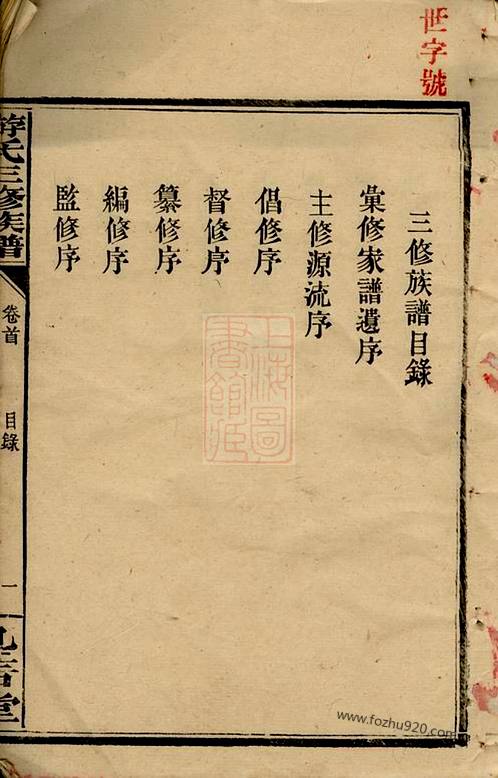 世字號
三修族譜目錄
彙修家譜遺序
主修源流序
倡修序
督修序
纂修序
編修序
監修序
氏三修族譜
卷首
目錄
一
堂
上海圖書館
www.fozhu920.com